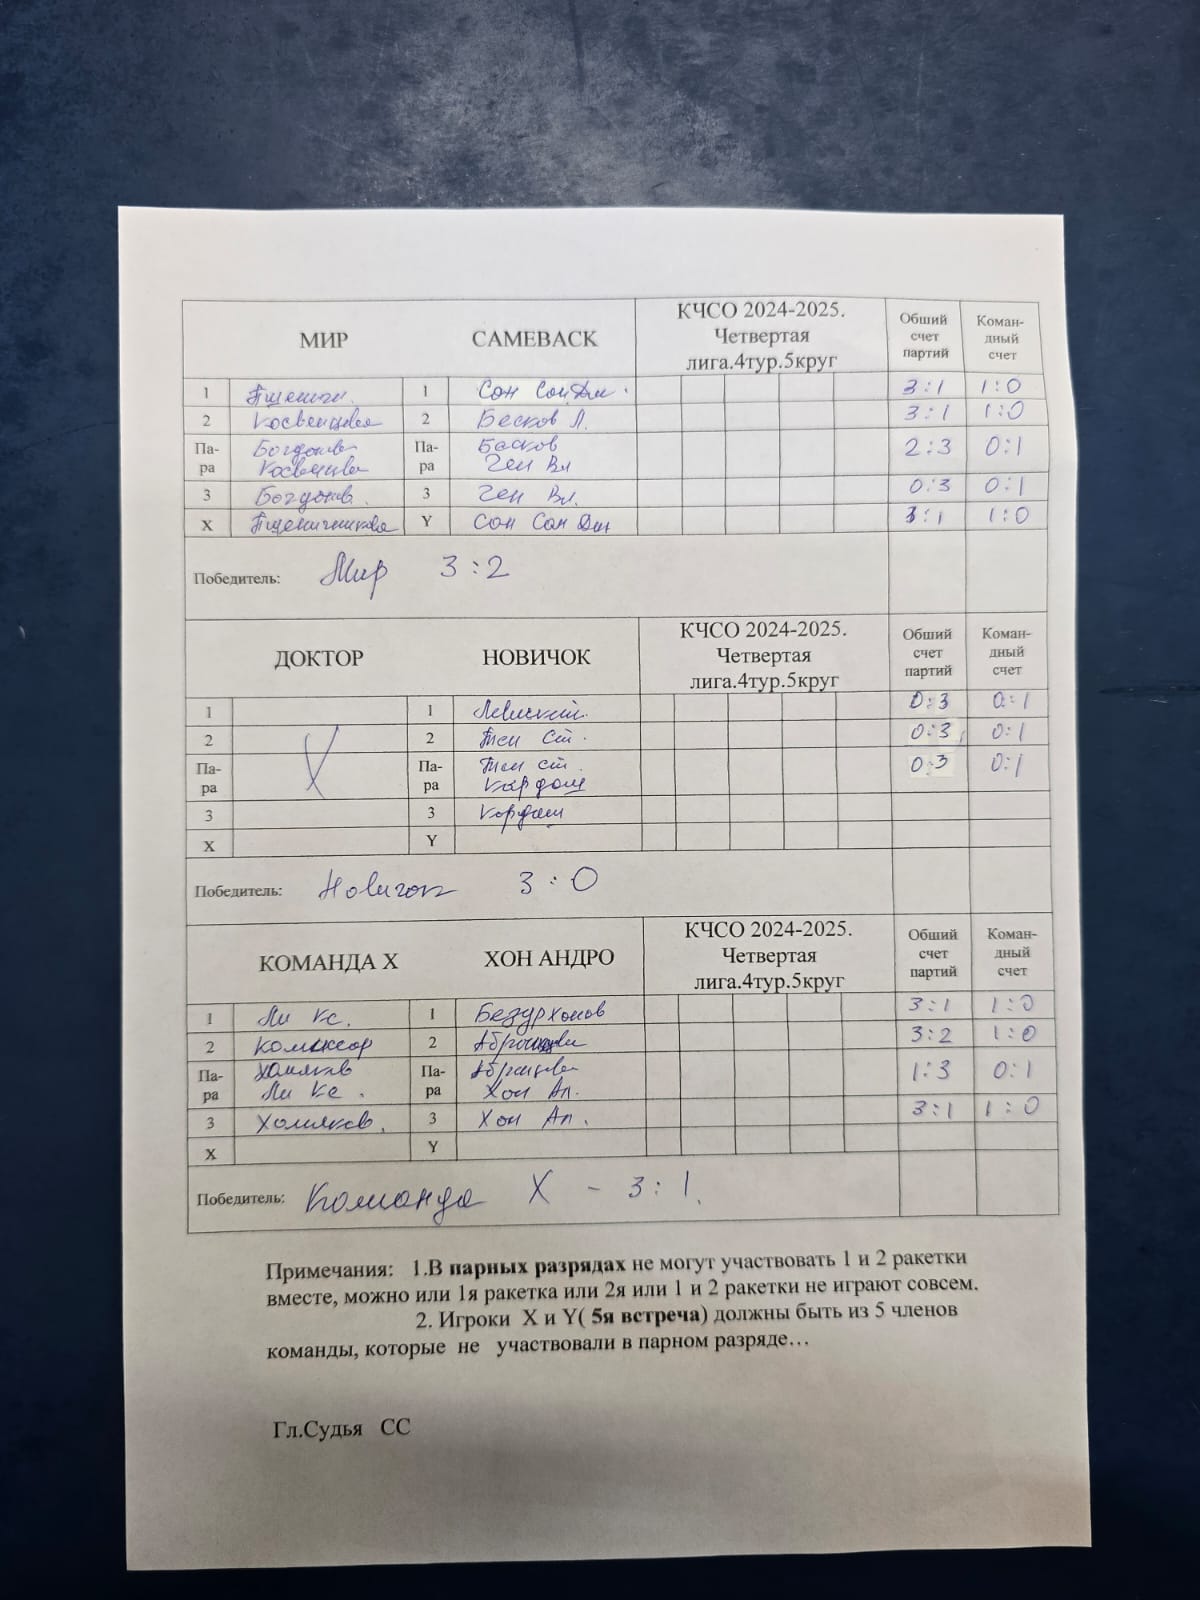 МИР САМЕВАСК КЧСО 2024-2025. Четвертая лига.4тур.5круг Обший счет партий Коман-дный счет
1 1 Сон Сон Дин. 3:1 1:0
2 Косвенцева 2 Бесков Л. 3:1 1:0
Па-ра Косвенцева Па-ра Бесков Ген Вл 2:3 0:1
3 3 Ген Вл. 0:3 0:1
X Пшеничникова Y Сон Сон Дин 3:1 1:0
Победитель: Мир 3:2
ДОКТОР НОВИЧОК КЧСО 2024-2025. Четвертая лига.4тур.5круг Обший счет партий Коман-дный счет
1 1 0:3 0:1
2 X 2 Тен Ст. 0:3 0:1
Па-ра Па-ра Тен Ст. Кардаш 0:3 0:1
3 3 Кардаш
X Y
Победитель: Новичок 3:0
КОМАНДА Х ХОН АНДРО КЧСО 2024-2025. Четвертая лига.4тур.5круг Обший счет партий Коман-дный счет
1 Ли Кс. 1 3:1 1:0
2 2 3:2 1:0
Па-ра Хомяков Ли Кс. Па-ра Хон Ан. 1:3 0:1
3 Хомяков. 3 Хон Ан. 3:1 1:0
X Y
Победитель: Команда X - 3:1.
Примечания: 1.В парных разрядах не могут участвовать 1 и 2 ракетки
вместе, можно или 1я ракетка или 2я или 1 и 2 ракетки не играют совсем.
2. Игроки Х и Y( 5я встреча) должны быть из 5 членов
команды, которые не участвовали в парном разряде…
Гл.Судья СС